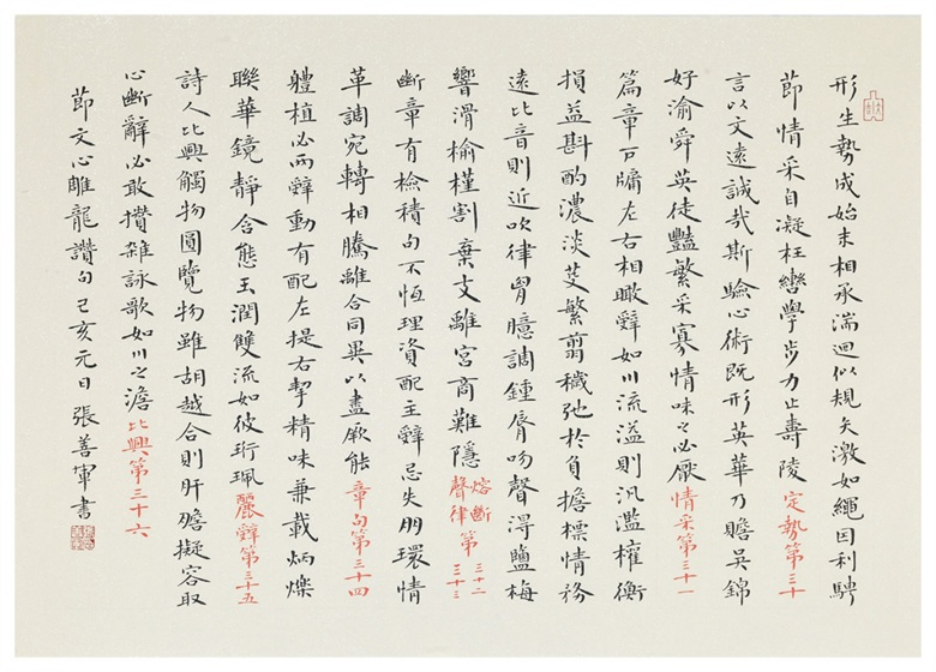 形生勢成始末相承湍迴似規矢激如繩因利騁
節情采自凝枉轡學步力止壽陵定勢第三十
言以文遠誠哉斯驗心術既形英華乃贍吳錦
好渝舜英徒豔繁采寡情味之必厭情采第三十一
篇章戶牖左右相瞰辭如川流溢則汎濫權衡
損益斟酌濃淡芟繁翦穢弛於負擔標情務
遠比音則近吹律胷臆調鍾脣吻聲得鹽梅
響滑榆槿割棄支離宮商難隱熔斷聲律第三十二三十三
斷章有檢積句不恆理資配主辭忌失朋環情
革調宛轉相騰離合同異以盡厥能章句第三十四
軆植必兩辭動有配左提右挈精味兼載炳爍
聯華鏡靜含態玉潤雙流如彼珩珮麗辭第三十五
詩人比興觸物圓覽物雖胡越合則肝膽擬容取
心斷辭必敢攢雜詠歌如川之澹比興第三十六
節文心雕龍讚句己亥元日張善軍書